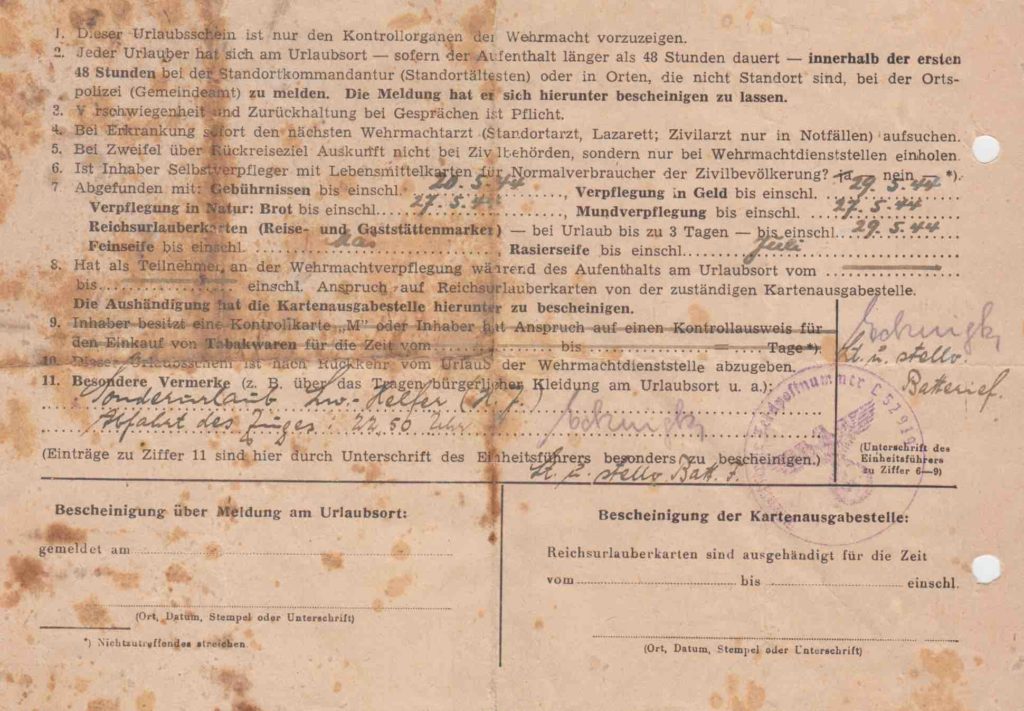 1. Dieser Urlaubsschein ist nur den Kontrollorganen der Wehrmacht vorzuzeigen.
2. Jeder Urlauber hat sich am Urlaubsort — sofern der Aufenthalt länger als 48 Stunden dauert — innerhalb der ersten
48 Stunden bei der Standortkommandantur (Standortältesten) oder in Orten, die nicht Standort sind, bei der Orts-
polizei (Gemeindeamt) zu melden. Die Meldung hat er sich hierunter bescheinigen zu lassen.
3. V rschwiegenheit und Zurückhaltung bei Gesprächen ist Pflicht.
4. Bei Erkrankung sofort den nächsten Wehrmachtarzt (Standortarzt, Lazarett; Zivilarzt nur in Notfällen) aufsuchen.
5. Bei Zweifel über Rückreiseziel Auskunft nicht bei Zivilbehörden, sondern nur bei Wehrmachtdienststellen einholen.
6. Ist Inhaber Selbstverpfleger mit Lebensmittelkarten für Normalverbraucher der Zivilbevölkerung? ja — nein — *).
7. Abgefunden mit: Gebührnissen bis einschl. 20.5.44, Verpflegung in Geld bis einschl. 29.5.44
Verpflegung in Natur: Brot bis einschl. 27.5.44, Mundverpflegung bis einschl. 27.5.44
Reichsurlauberkarten (Reise- und Gaststättenmarken) — bei Urlaub bis zu 3 Tagen — bis einschl. 29.5.44
Feinseife bis einschl. Mai Rasierseife bis einschl. Juli
8. Hat als Teilnehmer an der Wehrmachtverpflegung während des Aufenthalts am Urlaubsort vom
bis einschl. Anspruch auf Reichsurlauberkarten von der zuständigen Kartenausgabestelle.
Die Aushändigung hat die Kartenausgabestelle hierunter zu bescheinigen.
9. Inhaber besitzt eine Kontrollkarte „M" oder Inhaber hat Anspruch auf einen Kontrollausweis für
den Einkauf von Tabakwaren für die Zeit vom bis — Tage *).
Lt. u. stello.
Batterief.
10. Dieser Urlaubsschein ist nach Rückkehr vom Urlaub der Wehrmachtdienststelle abzugeben.
11. Besondere Vermerke (z. B. über das Tragen bürgerlicher Kleidung am Urlaubsort u. a.):
Sonderurlaub Lw.-Helfer (H. J.)
Abfahrt des Zuges: 22.50 Uhr
Feldpostnummer
(Einträge zu Ziffer 11 sind hier durch Unterschrift des Einheitsführers besonders zu bescheinigen.)
Lt. u. stello Batt. F.
(Unterschrift des
Einheitsführers
zu Ziffer 6—9)
Bescheinigung über Meldung am Urlaubsort:
gemeldet am
(Ort, Datum, Stempel oder Unterschrift)
*) Nichtzutreffendes streichen.
Bescheinigung der Kartenausgabestelle:
Reichsurlauberkarten sind ausgehändigt für die Zeit
vom bis einschl.
(Ort, Datum, Stempel oder Unterschrift)